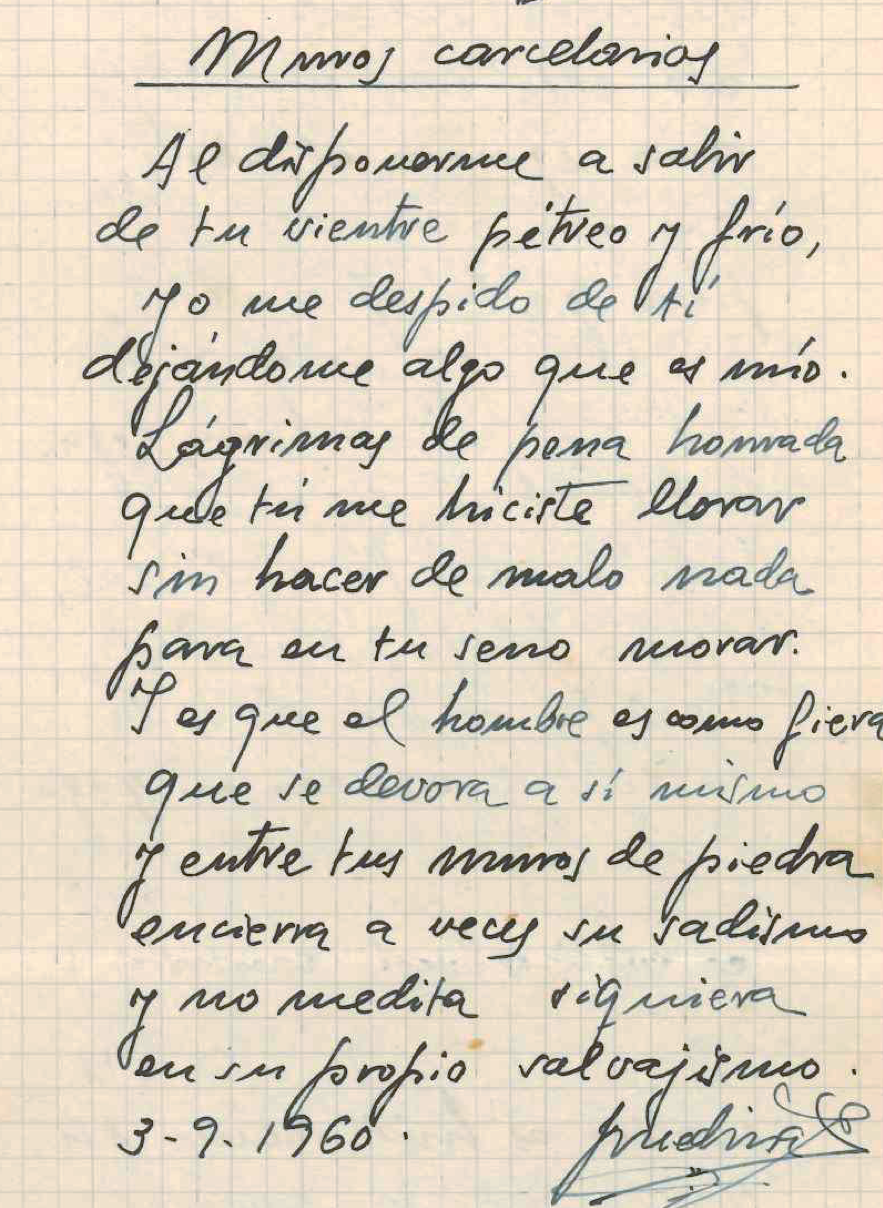 Muros carcelarios
Al disponerme a salir
de tu vientre pétreo y frío,
yo me despido de tí
dejándome algo que es mío.
Lágrimas de pena honrada
que tú me hiciste llorar
sin hacer de malo nada
para en tu seno morar.
Y es que el hombre es como fiera
que se devora a sí mismo
y entre tus muros de piedra
encierra a veces su sadismo
y no medita siquiera
en su propio salvajismo.
3-9-1960.